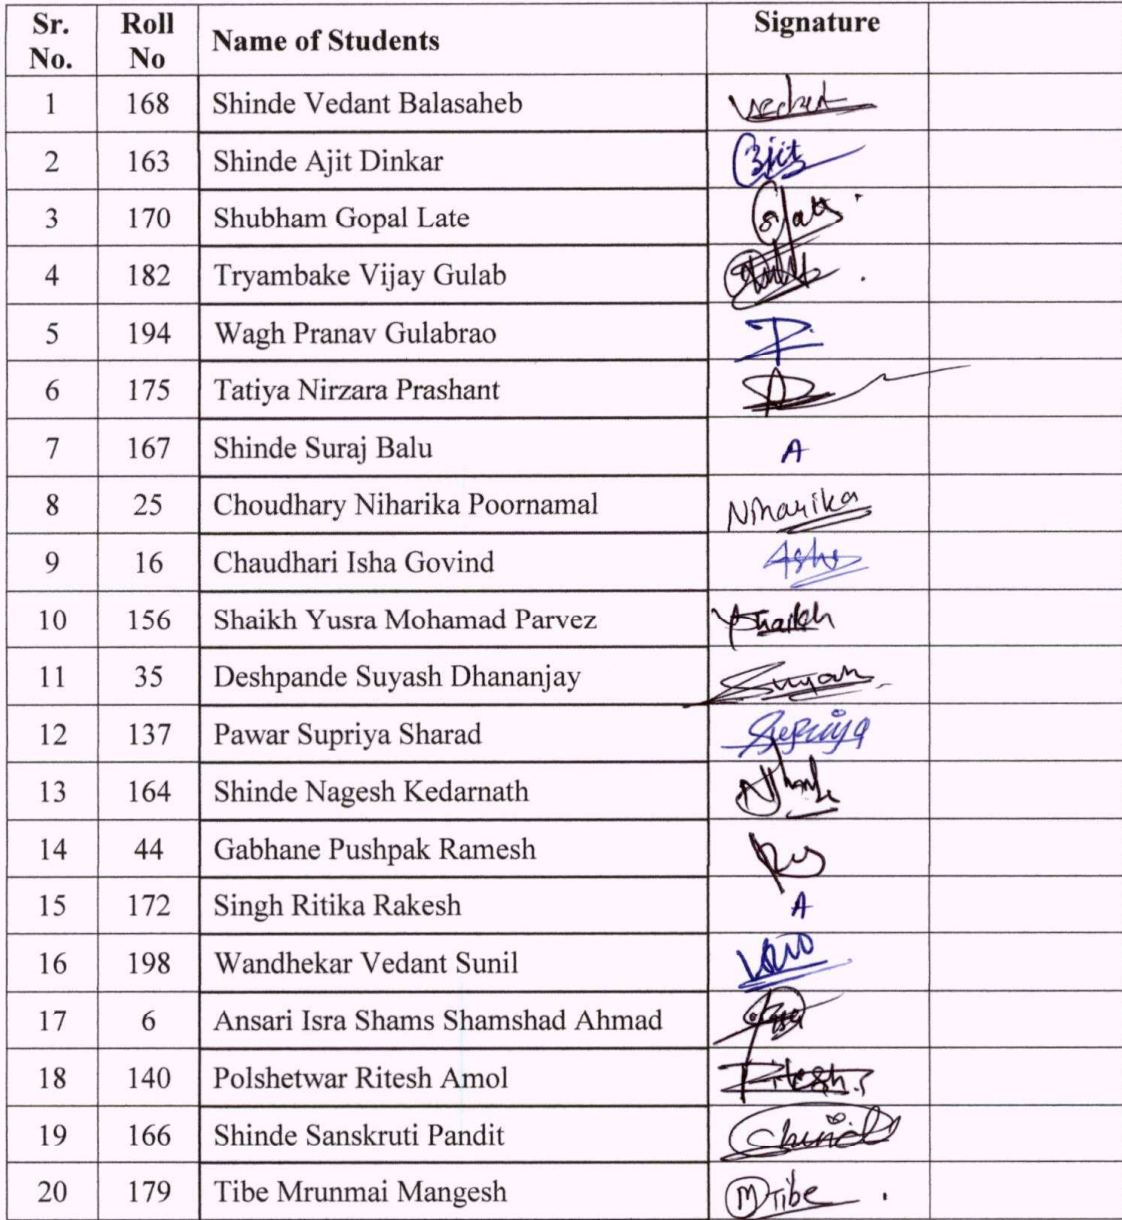 Sr. No. Roll No Name of Students Signature
1 168 Shinde Vedant Balasaheb Vedant
2 163 Shinde Ajit Dinkar Ajit
3 170 Shubham Gopal Late
4 182 Tryambake Vijay Gulab
5 194 Wagh Pranav Gulabrao
6 175 Tatiya Nirzara Prashant
7 167 Shinde Suraj Balu A
8 25 Choudhary Niharika Poornamal Niharika
9 16 Chaudhari Isha Govind
10 156 Shaikh Yusra Mohamad Parvez YShaikh
11 35 Deshpande Suyash Dhananjay Suyash
12 137 Pawar Supriya Sharad Supriya
13 164 Shinde Nagesh Kedarnath
14 44 Gabhane Pushpak Ramesh
15 172 Singh Ritika Rakesh A
16 198 Wandhekar Vedant Sunil
17 6 Ansari Isra Shams Shamshad Ahmad
18 140 Polshetwar Ritesh Amol Ritesh
19 166 Shinde Sanskruti Pandit
20 179 Tibe Mrunmai Mangesh MTibe